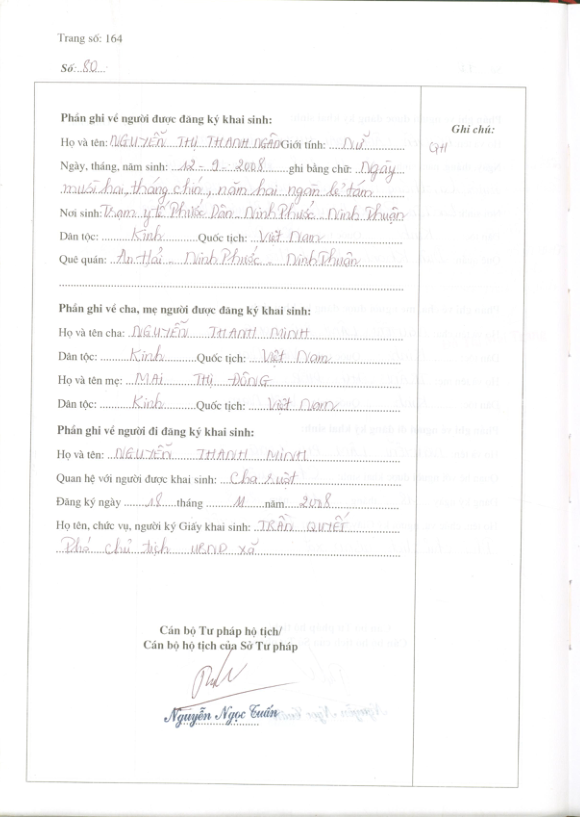 Trang số: 164
Số: 80
Phần ghi về người được đăng ký khai sinh:
Ghi chú:
Họ và tên: NGUYỄN THỊ THANH NGÂN Giới tính: Nữ
QH
Ngày, tháng, năm sinh: 12-9-2008 ghi bằng chữ: Ngày
mười hai, tháng chín, năm hai ngàn lẻ tám
Nơi sinh: Trạm y tế Phước Dân - Ninh Phước - Ninh Thuận
Dân tộc: Kinh Quốc tịch: Việt Nam
Quê quán: An Hải - Ninh Phước - Ninh Thuận
Phần ghi về cha, mẹ người được đăng ký khai sinh:
Họ và tên cha: NGUYỄN THANH MINH
Dân tộc: Kinh Quốc tịch: Việt Nam
Họ và tên mẹ: MAI THỊ ĐÔNG
Dân tộc: Kinh Quốc tịch: Việt Nam
Phần ghi về người đi đăng ký khai sinh:
Họ và tên: NGUYỄN THANH MINH
Quan hệ với người được khai sinh: Cha ruột
Đăng ký ngày 18 tháng 11 năm 2008
Họ tên, chức vụ, người ký Giấy khai sinh: TRẦN QUYẾT
Phó chủ tịch UBND xã
Cán bộ Tư pháp hộ tịch/
Cán bộ hộ tịch của Sở Tư pháp
Nguyễn Ngọc Tuấn